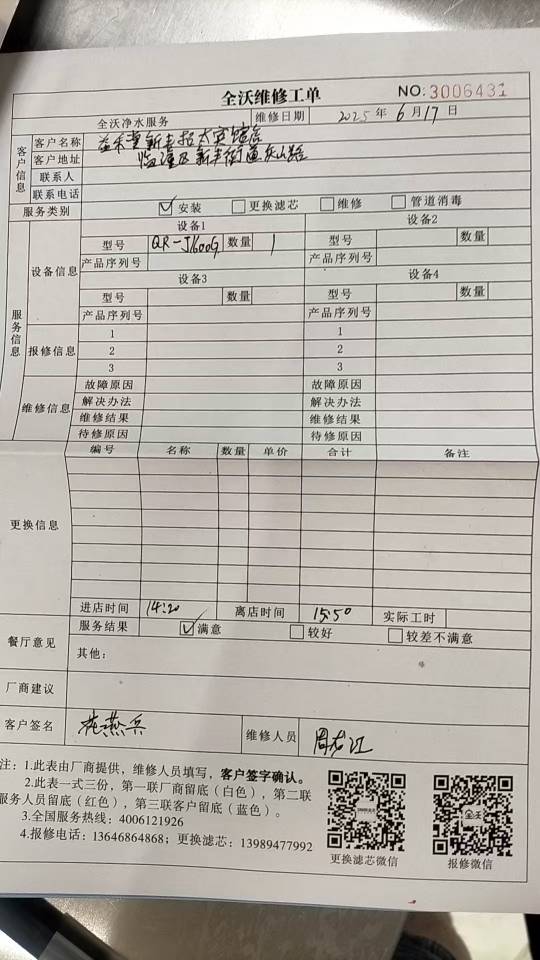 全沃维修工单
NO: 3006431
全沃净水服务 维修日期 2025 年 6 月 17 日
客户信息
客户名称 益禾堂新丰
客户地址 临潼区新丰街道
联系人
联系电话
服务类别 ☑ 安装 □ 更换滤芯 □ 维修 □ 管道消毒
服务信息
设备信息
设备1 设备2
型号 QR-J1600G 数量 1 型号 数量
产品序列号 产品序列号
设备3 设备4
型号 数量 型号 数量
产品序列号 产品序列号
报修信息
1 1
2 2
3 3
维修信息
故障原因 故障原因
解决办法 解决办法
维修结果 维修结果
待修原因 待修原因
更换信息
编号 名称 数量 单价 合计 备注
进店时间 14:20 离店时间 15:50 实际工时
餐厅意见
服务结果 ☑ 满意 □ 较好 □ 较差不满意
其他:
厂商建议
客户签名 维修人员 周龙江
注: 1.此表由厂商提供，维修人员填写，客户签字确认。
2.此表一式三份，第一联厂商留底（白色），第二联
服务人员留底（红色），第三联客户留底（蓝色）。
3.全国服务热线: 4006121926
4.报修电话: 13646864868; 更换滤芯: 13989477992
更换滤芯微信 报修微信